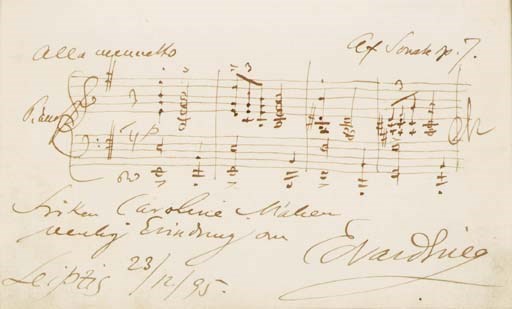 Alla menuetto
Af Sonate op. 7.
Piano
3
3
Frøken Caroline
venlig Erindring om
Edvard Grieg
Leipzig 23/12/95.